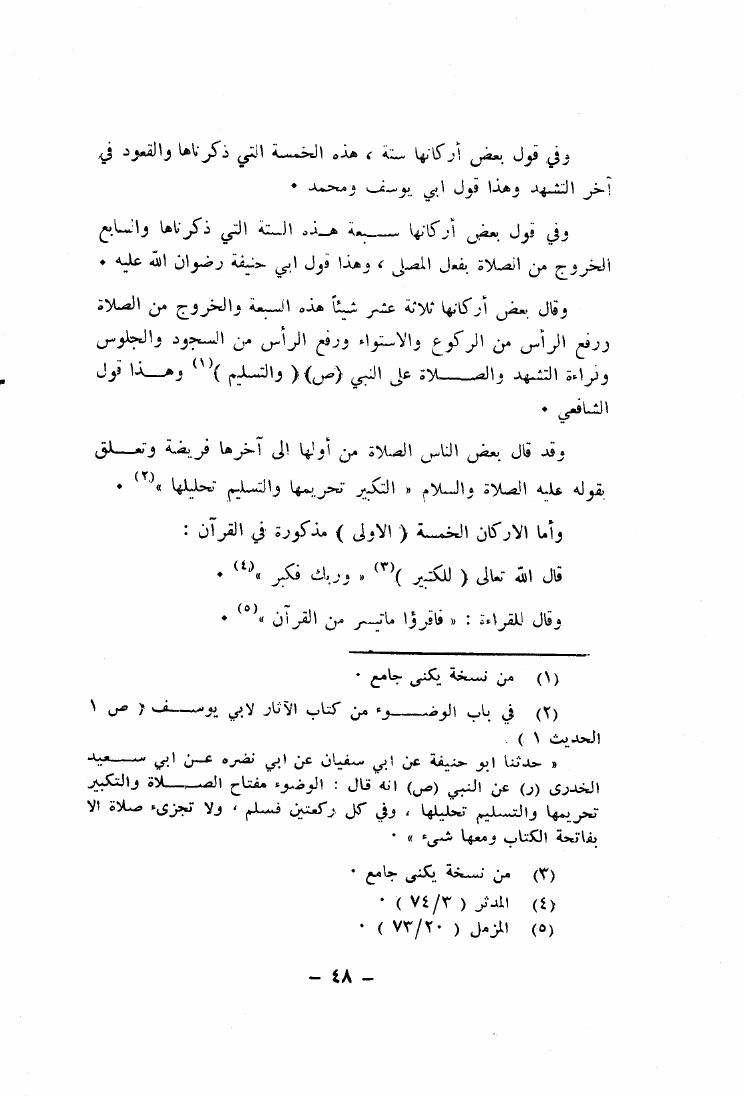 وفي قول بعض أركانها ستة ، هذه الخمسة التي ذكرناها والقعود في
آخر التشهد وهذا قول ابي يوسف ومحمد .
وفي قول بعض أركانها سبعة هذه الستة التي ذكرناها والسابع
الخروج من الصلاة بفعل المصلى ، وهذا قول ابي حنيفة رضوان الله عليه .
وقال بعض أركانها ثلاثة عشر شيئاً هذه السبعة والخروج من الصلاة
ورفع الرأس من الركوع والاستواء ورفع الرأس من السجود والجلوس
وقراءة التشهد والصلاة على النبي (ص) ( والتسليم )(١) وهذا قول
الشافعي .
وقد قال بعض الناس الصلاة من أولها الى آخرها فريضة وتعلق
بقوله عليه الصلاة والسلام « التكبير تحريمها والتسليم تحليلها »(٢) .
وأما الاركان الخمسة ( الاولى ) مذكورة في القرآن :
قال الله تعالى ( للتكبير )(٣) « وربك فكبر »(٤) .
وقال للقراءة : « فاقرؤا ماتيسر من القرآن »(٥) .
(١) من نسخة يكنى جامع .
(٢) في باب الوضوء من كتاب الآثار لابي يوسف ( ص ١
الحديث ١ ) .
« حدثنا ابو حنيفة عن ابي سفيان عن ابي نضره عن ابي سعيد
الخدرى (ر) عن النبي (ص) انه قال : الوضوء مفتاح الصلاة والتكبير
تحريمها والتسليم تحليلها ، وفي كل ركعتين فسلم ، ولا تجزىء صلاة الا
بفاتحة الكتاب ومعها شىء » .
(٣) من نسخة يكنى جامع .
(٤) المدثر ( ٧٤/٣ ) .
(٥) المزمل ( ٧٣/٢٠ ) .
– ٤٨ –